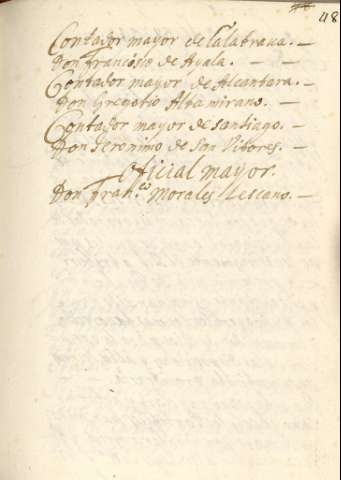 118
Contador mayor de Calatraua. —
Don Francisco de Ayala. — —
Contador mayor de Alcantara. —
Don Gregorio Altamirano. —
Contador mayor de Santiago. —
Don Jeronimo de San Vitores. —
Oficial mayor.
Don Fran.co Morales Lescano. —